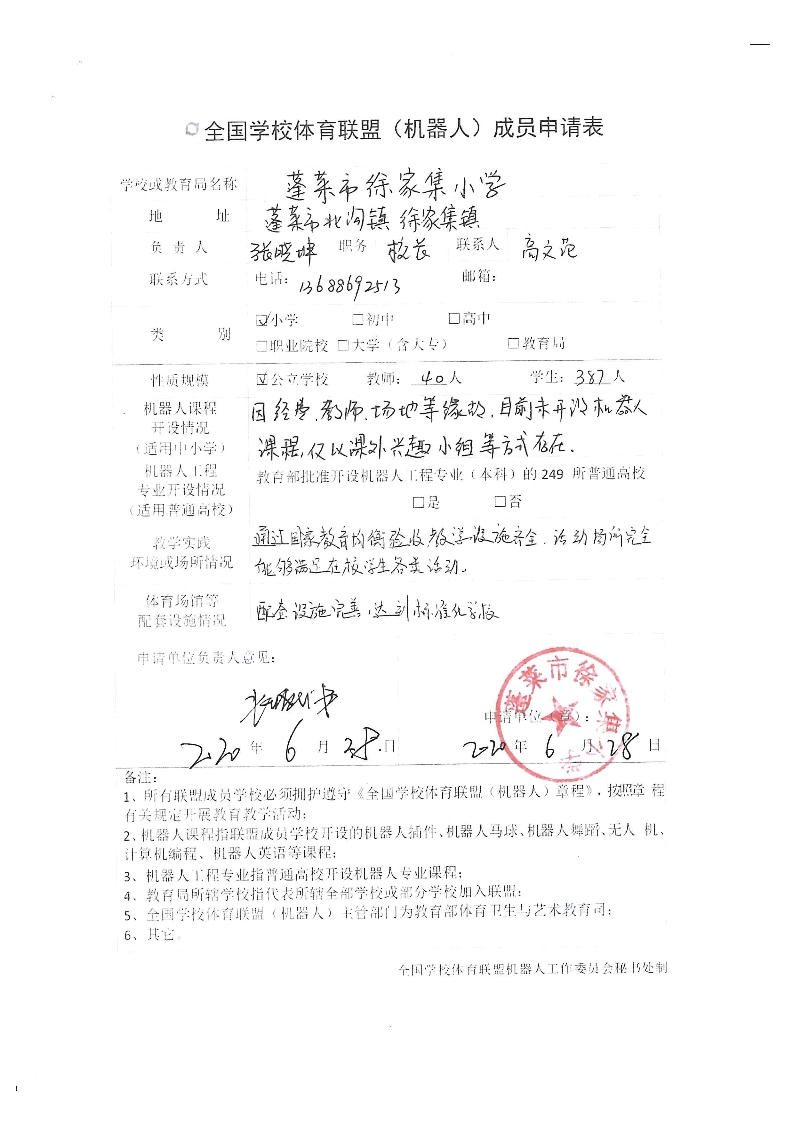 全国学校体育联盟（机器人）成员申请表
学校或教育局名称 蓬莱市徐家集小学
地 址 蓬莱市北沟镇徐家集镇
负 责 人 张晓坤 职务 校长 联系人 高文范
联系方式 电话：13688692513 邮箱：
类 别 ☑小学 □初中 □高中
□职业院校 □大学（含大专） □教育局
性质规模 ☑公立学校 教师：40人 学生：387人
机器人课程
开设情况
（适用中小学）
因经费、教师、场地等缘故，目前未开设机器人
课程，仅以课外兴趣小组等方式存在.
机器人工程
专业开设情况
（适用普通高校）
教育部批准开设机器人工程专业（本科）的 249 所普通高校
□是 □否
教学实践
环境或场所情况
通过国家教育均衡验收教学设施齐全.活动场所完全
能够满足在校学生各类活动。
体育场馆等
配套设施情况
配套设施完善，达到标准化学校
申请单位负责人意见：
蓬莱市徐家集小学
申请单位（章）：
2020 年 6 月 28 日 2020 年 6 月 28 日
备注：
1、所有联盟成员学校必须拥护遵守《全国学校体育联盟（机器人）章程》，按照章 程
有关规定开展教育教学活动；
2、机器人课程指联盟成员学校开设的机器人插件、机器人马球、机器人舞蹈、无人 机、
计算机编程、机器人英语等课程；
3、机器人工程专业指普通高校开设机器人专业课程；
4、教育局所辖学校指代表所辖全部学校或部分学校加入联盟；
5、全国学校体育联盟（机器人）主管部门为教育部体育卫生与艺术教育司；
6、其它。
全国学校体育联盟机器人工作委员会秘书处制